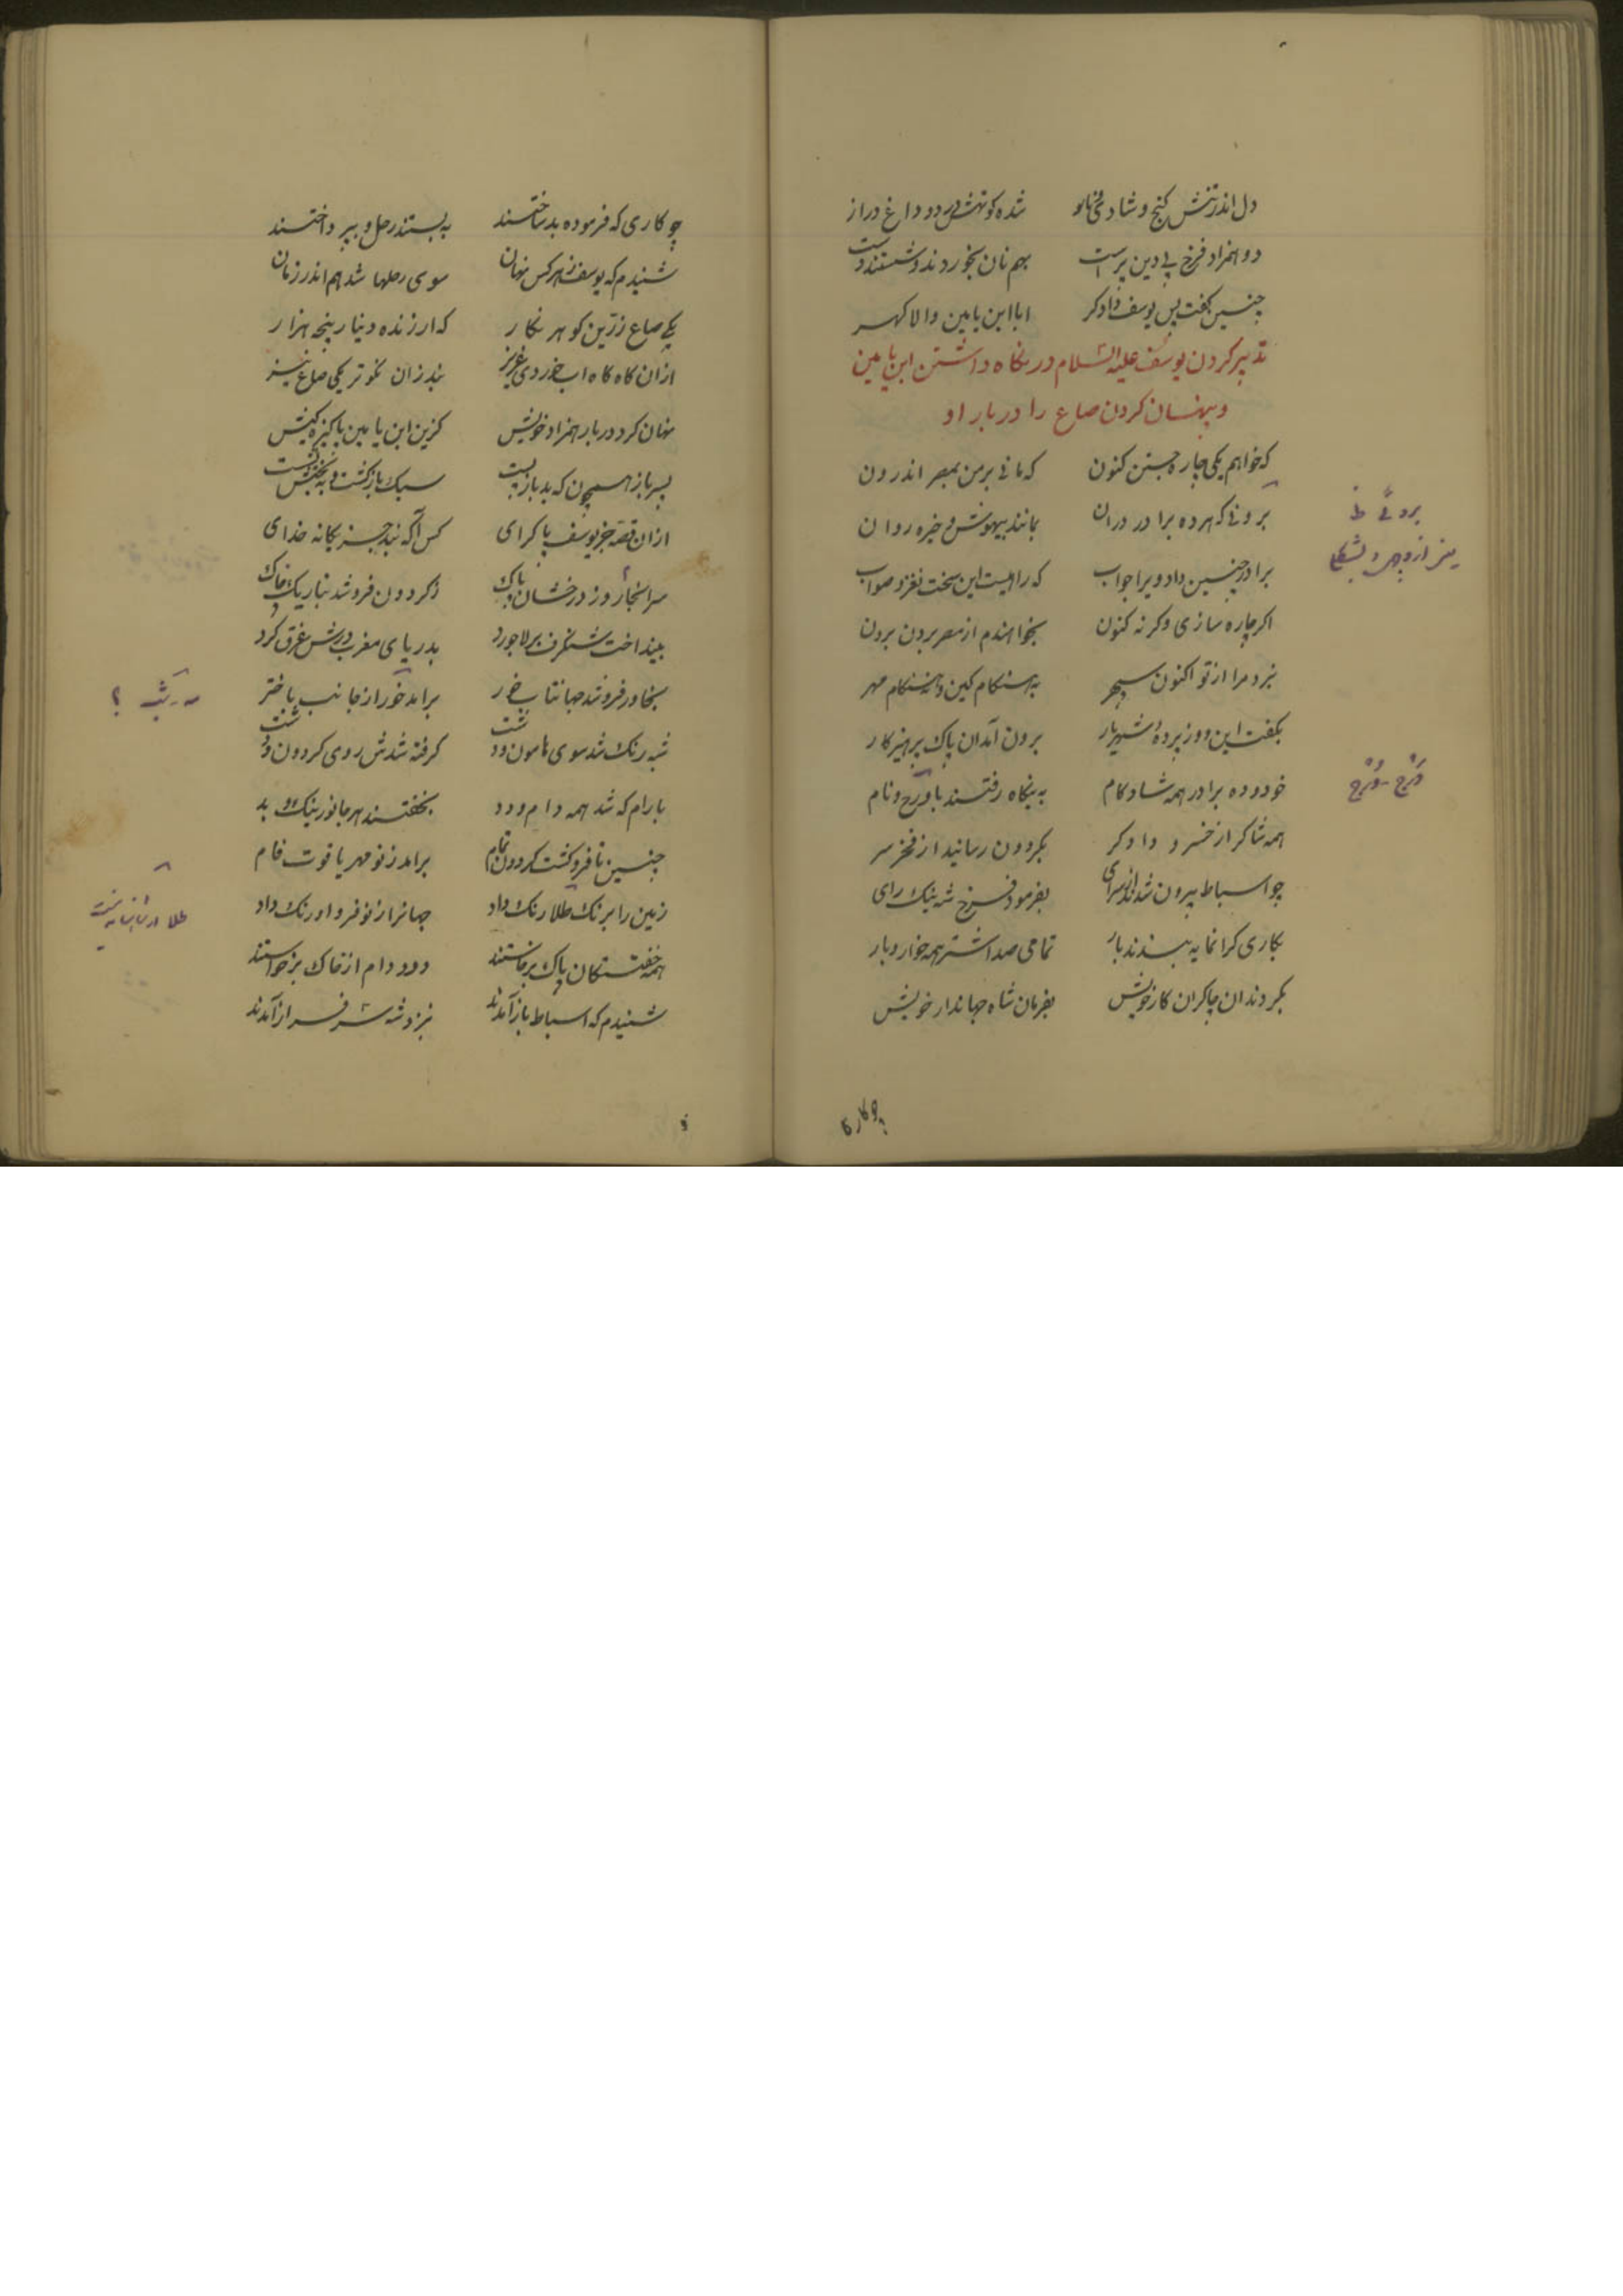 دل اندر تنش گنج و شادی شده کوتهش درد و داغ دراز
دو همزاد فرخ پی دین پرست بهم نان بخوردند و شستند دست
چنین گفت پس یوسف دادکر ابا ابن یامین والا کهر
تدبیر کردن یوسف علیه السلام در نکاه داشتن ابن یامین
و پنهان کردن صاع را در بار او
که خواهم یکی چاره جستن کنون که مانی بر من بمصر اندرون
برونی که هر ده برادر دران بمانند بیهوش و خیره روان
برادر چنین داد ویرا جواب که راهیست این سخت نغز و صواب
اکر چاره سازی وکرنه کنون نخواهم شدم از مصر بردن برون
نبرد مرا از تو اکنون سپهر به هنکام کین و به هنکام مهر
بگفت این و وز پرده شهریار برون آمد ان پاک پرهیزکار
خود و ده برادر همه شادکام به بنکاه رفتند با ورج و نام
همه شاکر از خسرو دادکر بکردون رسانید از فخر سر
چو اسباط بیرون شدند از سرای بفرمود فرخ شه نیک رای
بکاری کرانمایه بستند بار تمامی صد اشتر همه خواروبار
بکردند ان چاکران کار خویش بفرمان شاه جهاندار خویش
چو کاری
برونی ظ
ورج
چو کاری که فرموده بد ساختند به بستند رحل و بپرداختند
شنیدم که یوسف ز هر کس نهان سوی رحلها شد هم اندر زمان
یکی صاع زرین کوهر نکار که ارزنده دینار پنجه هزار
ازان کاه کاه اب خوردی عزیز نبد زان نکوتر یکی صاع نیز
نهان کرد در بار همزاد خویش کزین ابن یامین پاکیزه کیش
ببر باز همچون که بد باز بست سبک باز کشت و به تختش نشست
ازان قصه جز یوسف پاکرای کس آکه نبد جز یکانه خدای
سرانجام روز درخشان پاک ز کردون فرو شد بتاریک خاک
بینداخت شنکرف بر لاجورد بدریای مغرب درش غرق کرد
بخاور فرو شد جهانتاب خور برامد خور از جانب باختر
شبه رنک شد سوی هامون و دشت کرفته شدش روی کردون و کشت
بارام که شد همه دام و دد بخفتند هر جانور نیک و بد
چنین تا فرو کشت کردون تمام برامد ز نو مهر یاقوت فام
زمین را برنک طلا رنک داد جهانرا ز نو فر و اورنک داد
همه خفتکان پاک برخاستند دد و دام از خاک برخواستند
شنیدم که اسباط باز آمدند نزد شه سرفراز آمدند